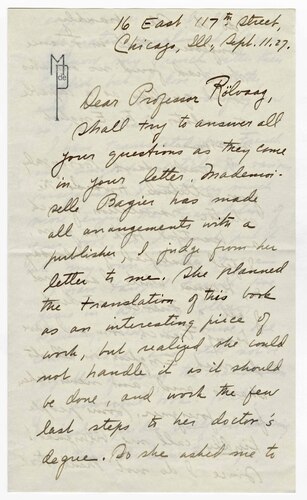 16 East 117th Street,
Chicago, Ill, Sept. 11. 27.
Dear Professor Rölvaag,
Shall try to answer all
your questions as they come
in your letter. Mademoi-
selle Bagier has made
all arrangements with a
publisher, I judge from her
letter to me. She planned
the translation of this book
as an interesting piece of
work, but realized she could
not handle it as it should
be done, and work the few
last steps to her doctor's
degree. So she asked me to